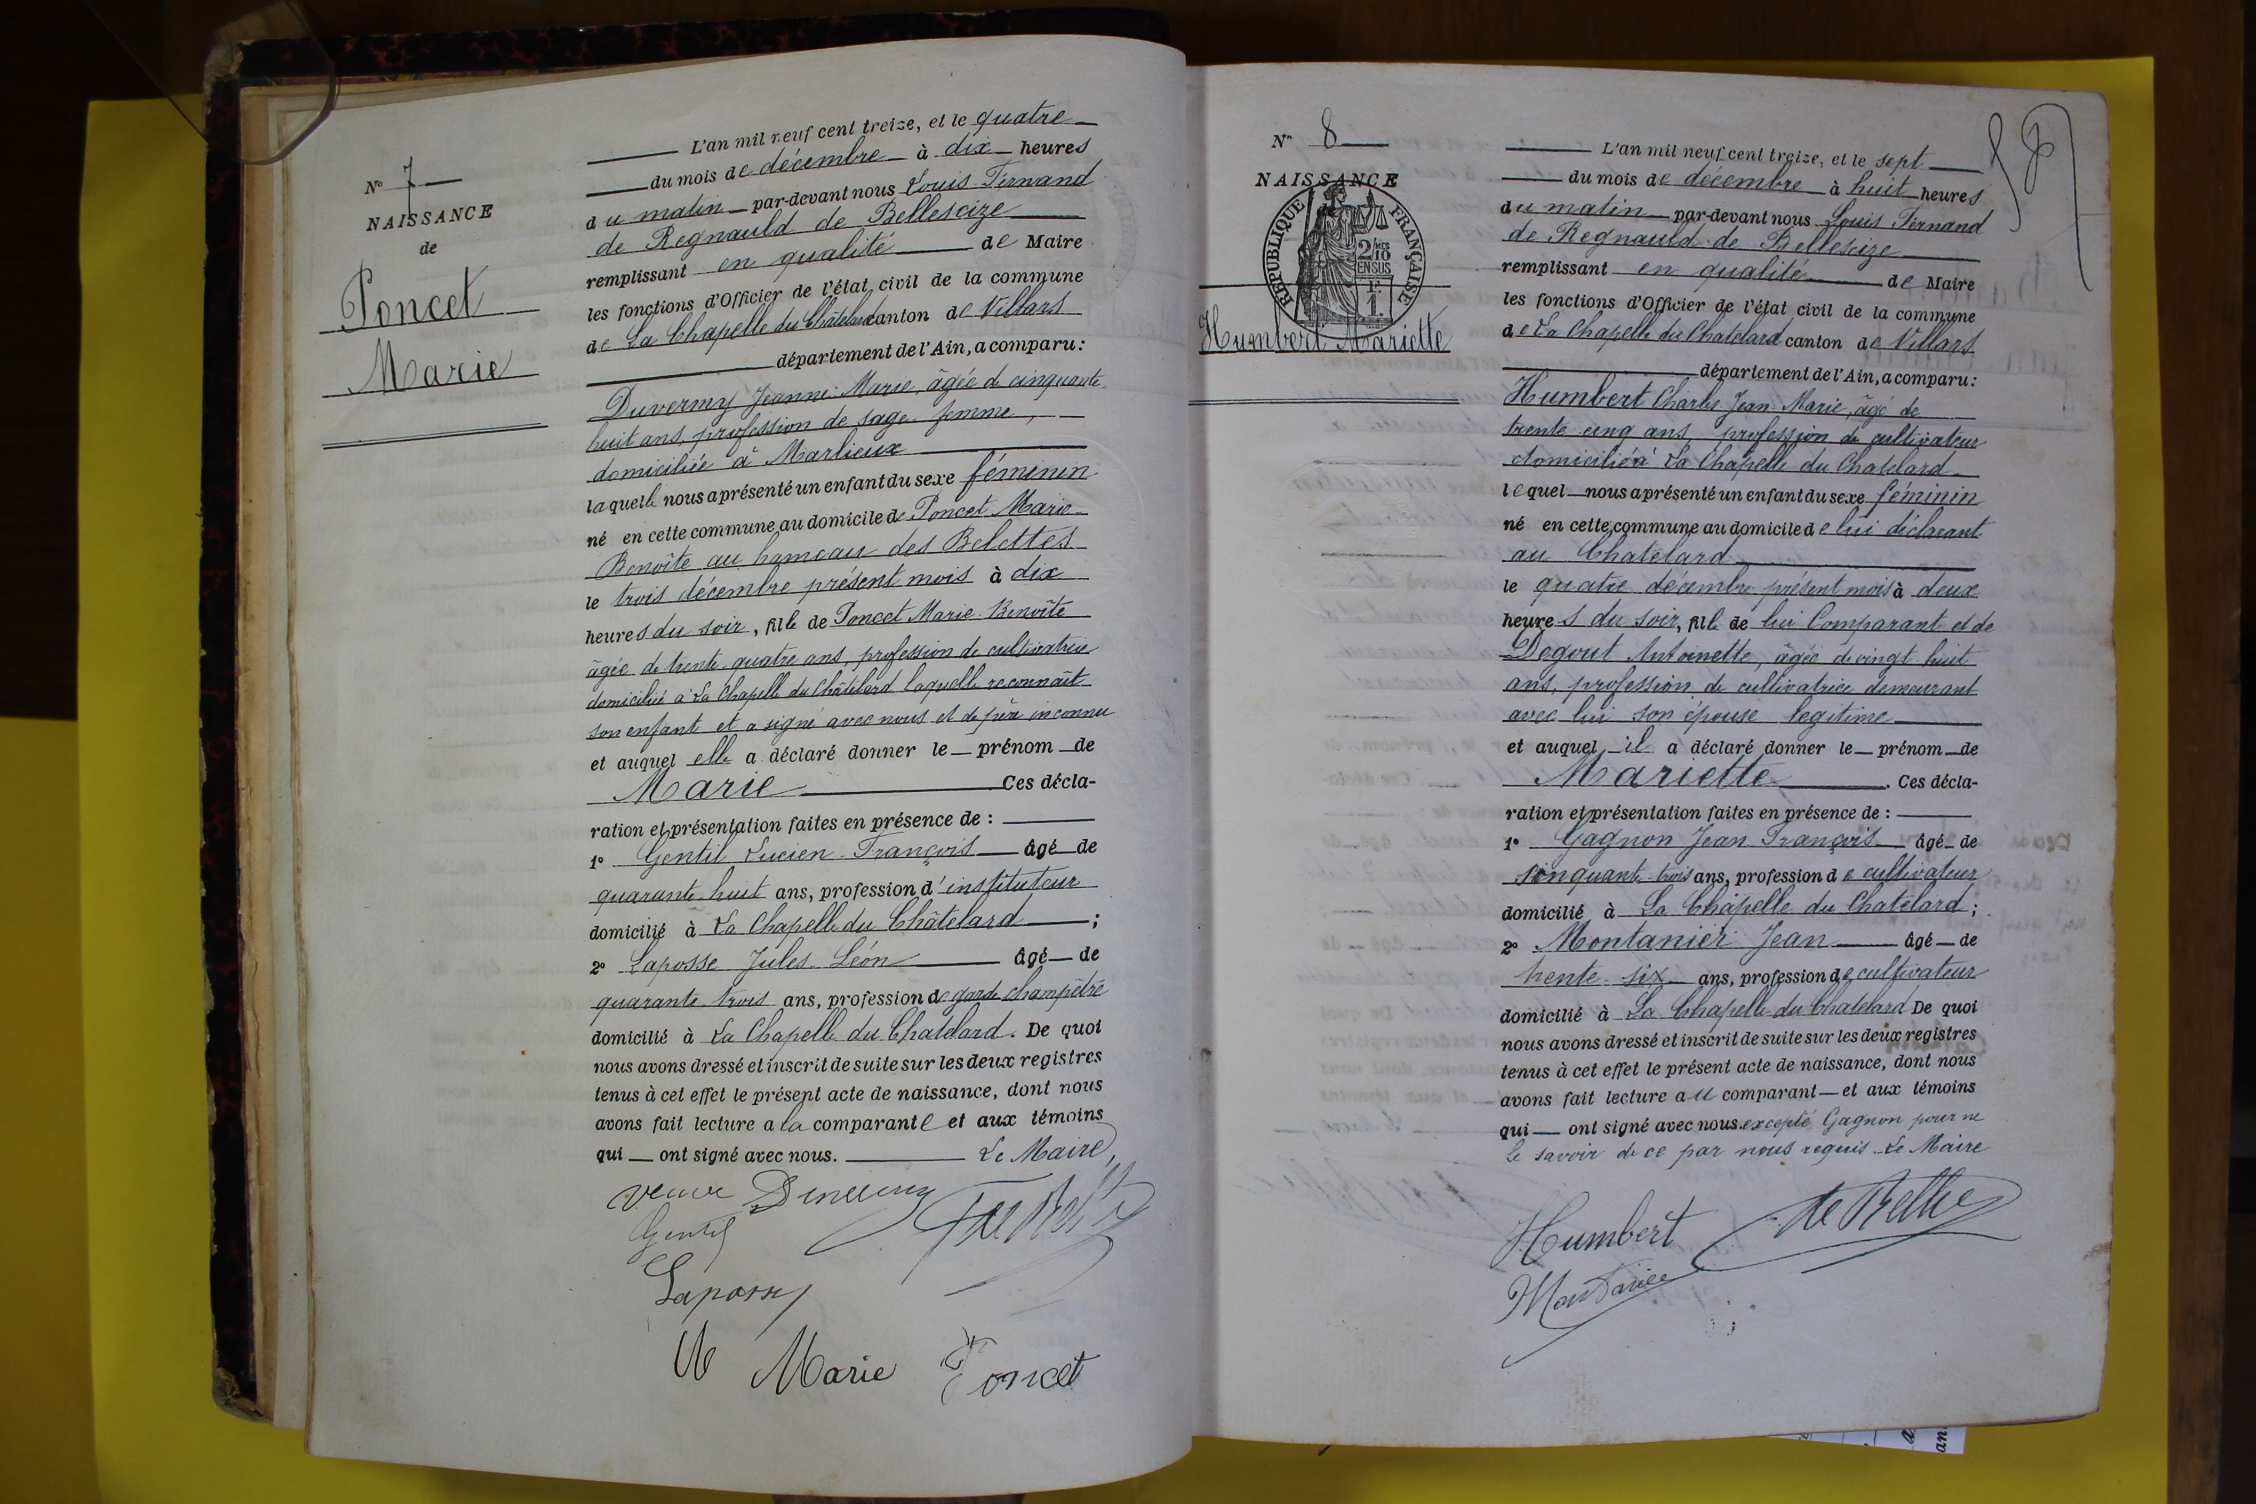 N° 7
NAISSANCE
de
Poncet
Marie
L'an mil neuf cent treize, et le quatre
du mois de décembre à dix heures
du matin par-devant nous Louis Fernand
de Regnauld de Bellescize
remplissant en qualité de Maire
les fonctions d'Officier de l'état civil de la commune
de La Chapelle du Châtelard canton de Villars
département de l'Ain, a comparu :
Duvermy Jeanne Marie, âgée de cinquante
huit ans, profession de sage-femme,
domiciliée à Marlieux
laquelle nous a présenté un enfant du sexe féminin
né en cette commune, au domicile de Poncet Marie
Benoîte au hameau des Belettes
le trois décembre présent mois à dix
heures du soir, fille de Poncet Marie Benoîte
âgée de trente quatre ans, profession de cultivatrice
domiciliée à La Chapelle du Châtelard laquelle reconnaît
son enfant et a signé avec nous et de père inconnu
et auquel elle a déclaré donner le prénom de
Marie Ces décla-
ration et présentation faites en présence de :
1° Gentil Lucien François âgé de
quarante huit ans, profession d'instituteur
domicilié à La Chapelle du Châtelard ;
2° Laposse Jules Léon âgé de
quarante trois ans, profession de garde champêtre
domicilié à La Chapelle du Chatelard. De quoi
nous avons dressé et inscrit de suite sur les deux registres
tenus à cet effet le présent acte de naissance, dont nous
avons fait lecture a la comparante et aux témoins
qui ont signé avec nous. Le Maire,
veuve
Gentil
Laposse
Marie Poncet
N° 8
NAISSANCE
RÉPUBLIQUE FRANÇAISE
2/10
EN SUS
1F
1.
Humbert Mariette
L'an mil neuf cent treize, et le sept
du mois de décembre à huit heures
du matin par-devant nous Louis Fernand
de Regnauld de Bellescize
remplissant en qualité de Maire
les fonctions d'Officier de l'état civil de la commune
de La Chapelle du Chatelard canton de Villars
département de l'Ain, a comparu :
Humbert Charles Jean Marie, âgé de
trente cinq ans, profession de cultivateur
domicilié à La Chapelle du Chatelard
lequel nous a présenté un enfant du sexe féminin
né en cette commune au domicile de lui déclarant
au Chatelard
le quatre décembre présent mois à deux
heures du soir, fille de lui Comparant et de
Degout Antoinette, âgée de vingt huit
ans, profession de cultivatrice demeurant
avec lui son épouse légitime
et auquel il a déclaré donner le prénom de
Mariette. Ces décla-
ration et présentation faites en présence de :
1° Gagnon Jean François âgé de
sinquante trois ans, profession de cultivateur
domicilié à La Chapelle du Chatelard ;
2° Montanier Jean âgé de
trente six ans, profession de cultivateur
domicilié à La Chapelle du Chatelard De quoi
nous avons dressé et inscrit de suite sur les deux registres
tenus à cet effet le présent acte de naissance, dont nous
avons fait lecture au comparant et aux témoins
qui ont signé avec nous excepté Gagnon pour ne
le savoir de ce par nous requis. Le Maire
Humbert
Montanier